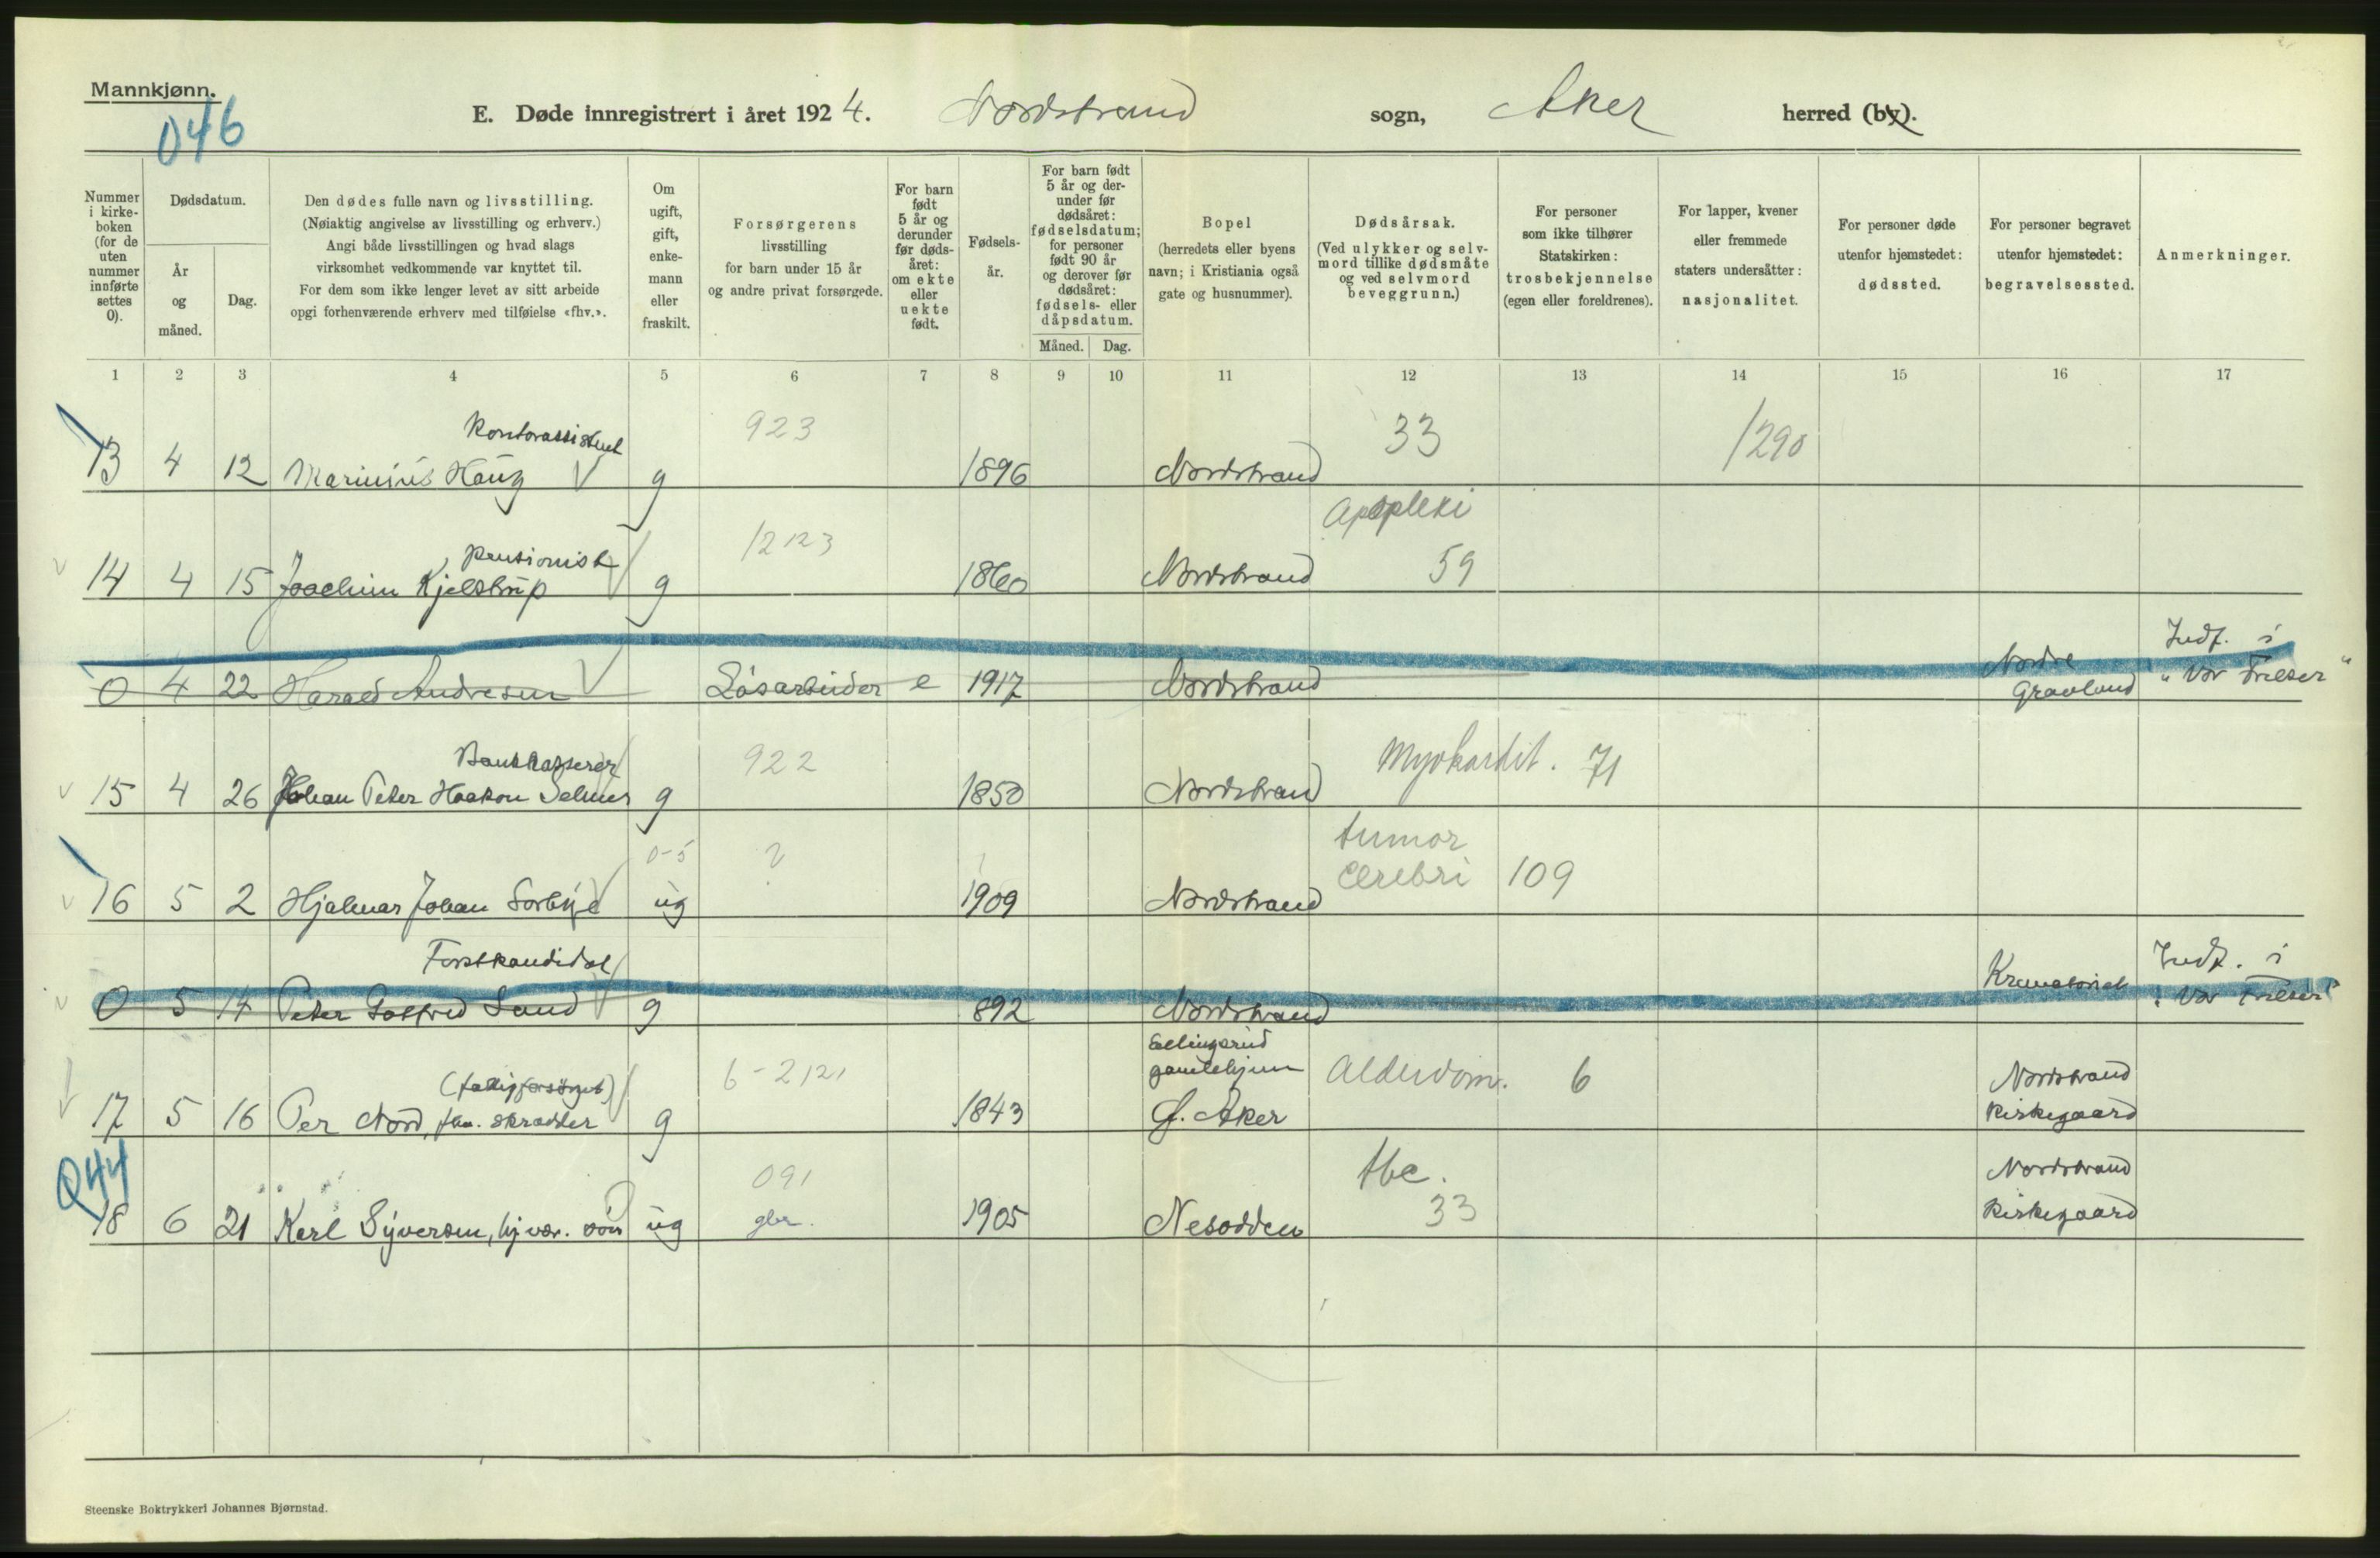 Mannkjønn.
046
E. Døde innregistrert i året 1924. Nordstrand sogn, Aker herred (by).
Nummer i kirke-boken (for de uten nummer innførte settes 0).
Dødsdatum.
År og måned.
Dag.
Den dødes fulle navn og livsstilling.
(Nøiaktig angivelse av livsstilling og erhverv.)
Angi både livsstillingen og hvad slags
virksomhet vedkommende var knyttet til.
For dem som ikke lenger levet av sitt arbeide
opgi forhenværende erhverv med tilføielse «fhv.».
Om ugift, gift, enke-mann eller fraskilt.
Forsørgerens
livsstilling
for barn under 15 år
og andre privat forsørgede.
For barn født 5 år og derunder før døds-året: om ekte eller uekte født.
Fødsels-år.
For barn født 5 år og der-under før dødsåret: fødselsdatum; for personer født 90 år og derover før dødsåret: fødsels- eller dåpsdatum.
Måned. Dag.
Bopel
(herredets eller byens
navn; i Kristiania også
gate og husnummer).
Dødsårsak.
(Ved ulykker og selv-
mord tillike dødsmåte
og ved selvmord
beveggrunn.)
For personer
som ikke tilhører
Statskirken:
trosbekjennelse
(egen eller foreldrenes).
For lapper, kvener
eller fremmede
staters undersåtter:
nasjonalitet.
For personer døde
utenfor hjemstedet:
dødssted.
For personer begravet
utenfor hjemstedet:
begravelsessted.
Anmerkninger.
1 2 3 4 5 6 7 8 9 10 11 12 13 14 15 16 17
Kontorassistent 923 33 1290
13 4 12 Marinius Haug g 1896 Nordstrand
pensionist 12123 Apoplexi
14 4 15 Joachim Kjelstrup g 1860 Nordstrand 59
Nordre Indf. i
0 4 22 Harald Andresen Løsarbeider e 1917 Nordstrand Gravlund "Vor Frelser"
Bankkasserer 922 Myokardit. 71
15 4 26 Johan Peter Haakon Selmer g 1850 Nordstrand
0-5 ? tumor
16 5 2 Hjalmar Johan Sørbye ug 1909 Nordstrand cerebri 109
Forstkandidat Krematoriet Indf. i
0 5 14 Peter Gotfred Sand g 892 Nordstrand "Vor Frelser"
Ellingsrud
(fattigforsørget) 6-2121 gamlehjem Alderdom. 6 Nordstrand
17 5 16 Per Nord, fhv. skrædder g 1843 Ø. Aker Kirkegaard
044 091 tbc. Nordstrand
18 6 21 Karl Syversen, hj.vær. søn ug gbr. 1905 Nesodden 33 Kirkegaard
Steenske Boktrykkeri Johannes Bjørnstad.